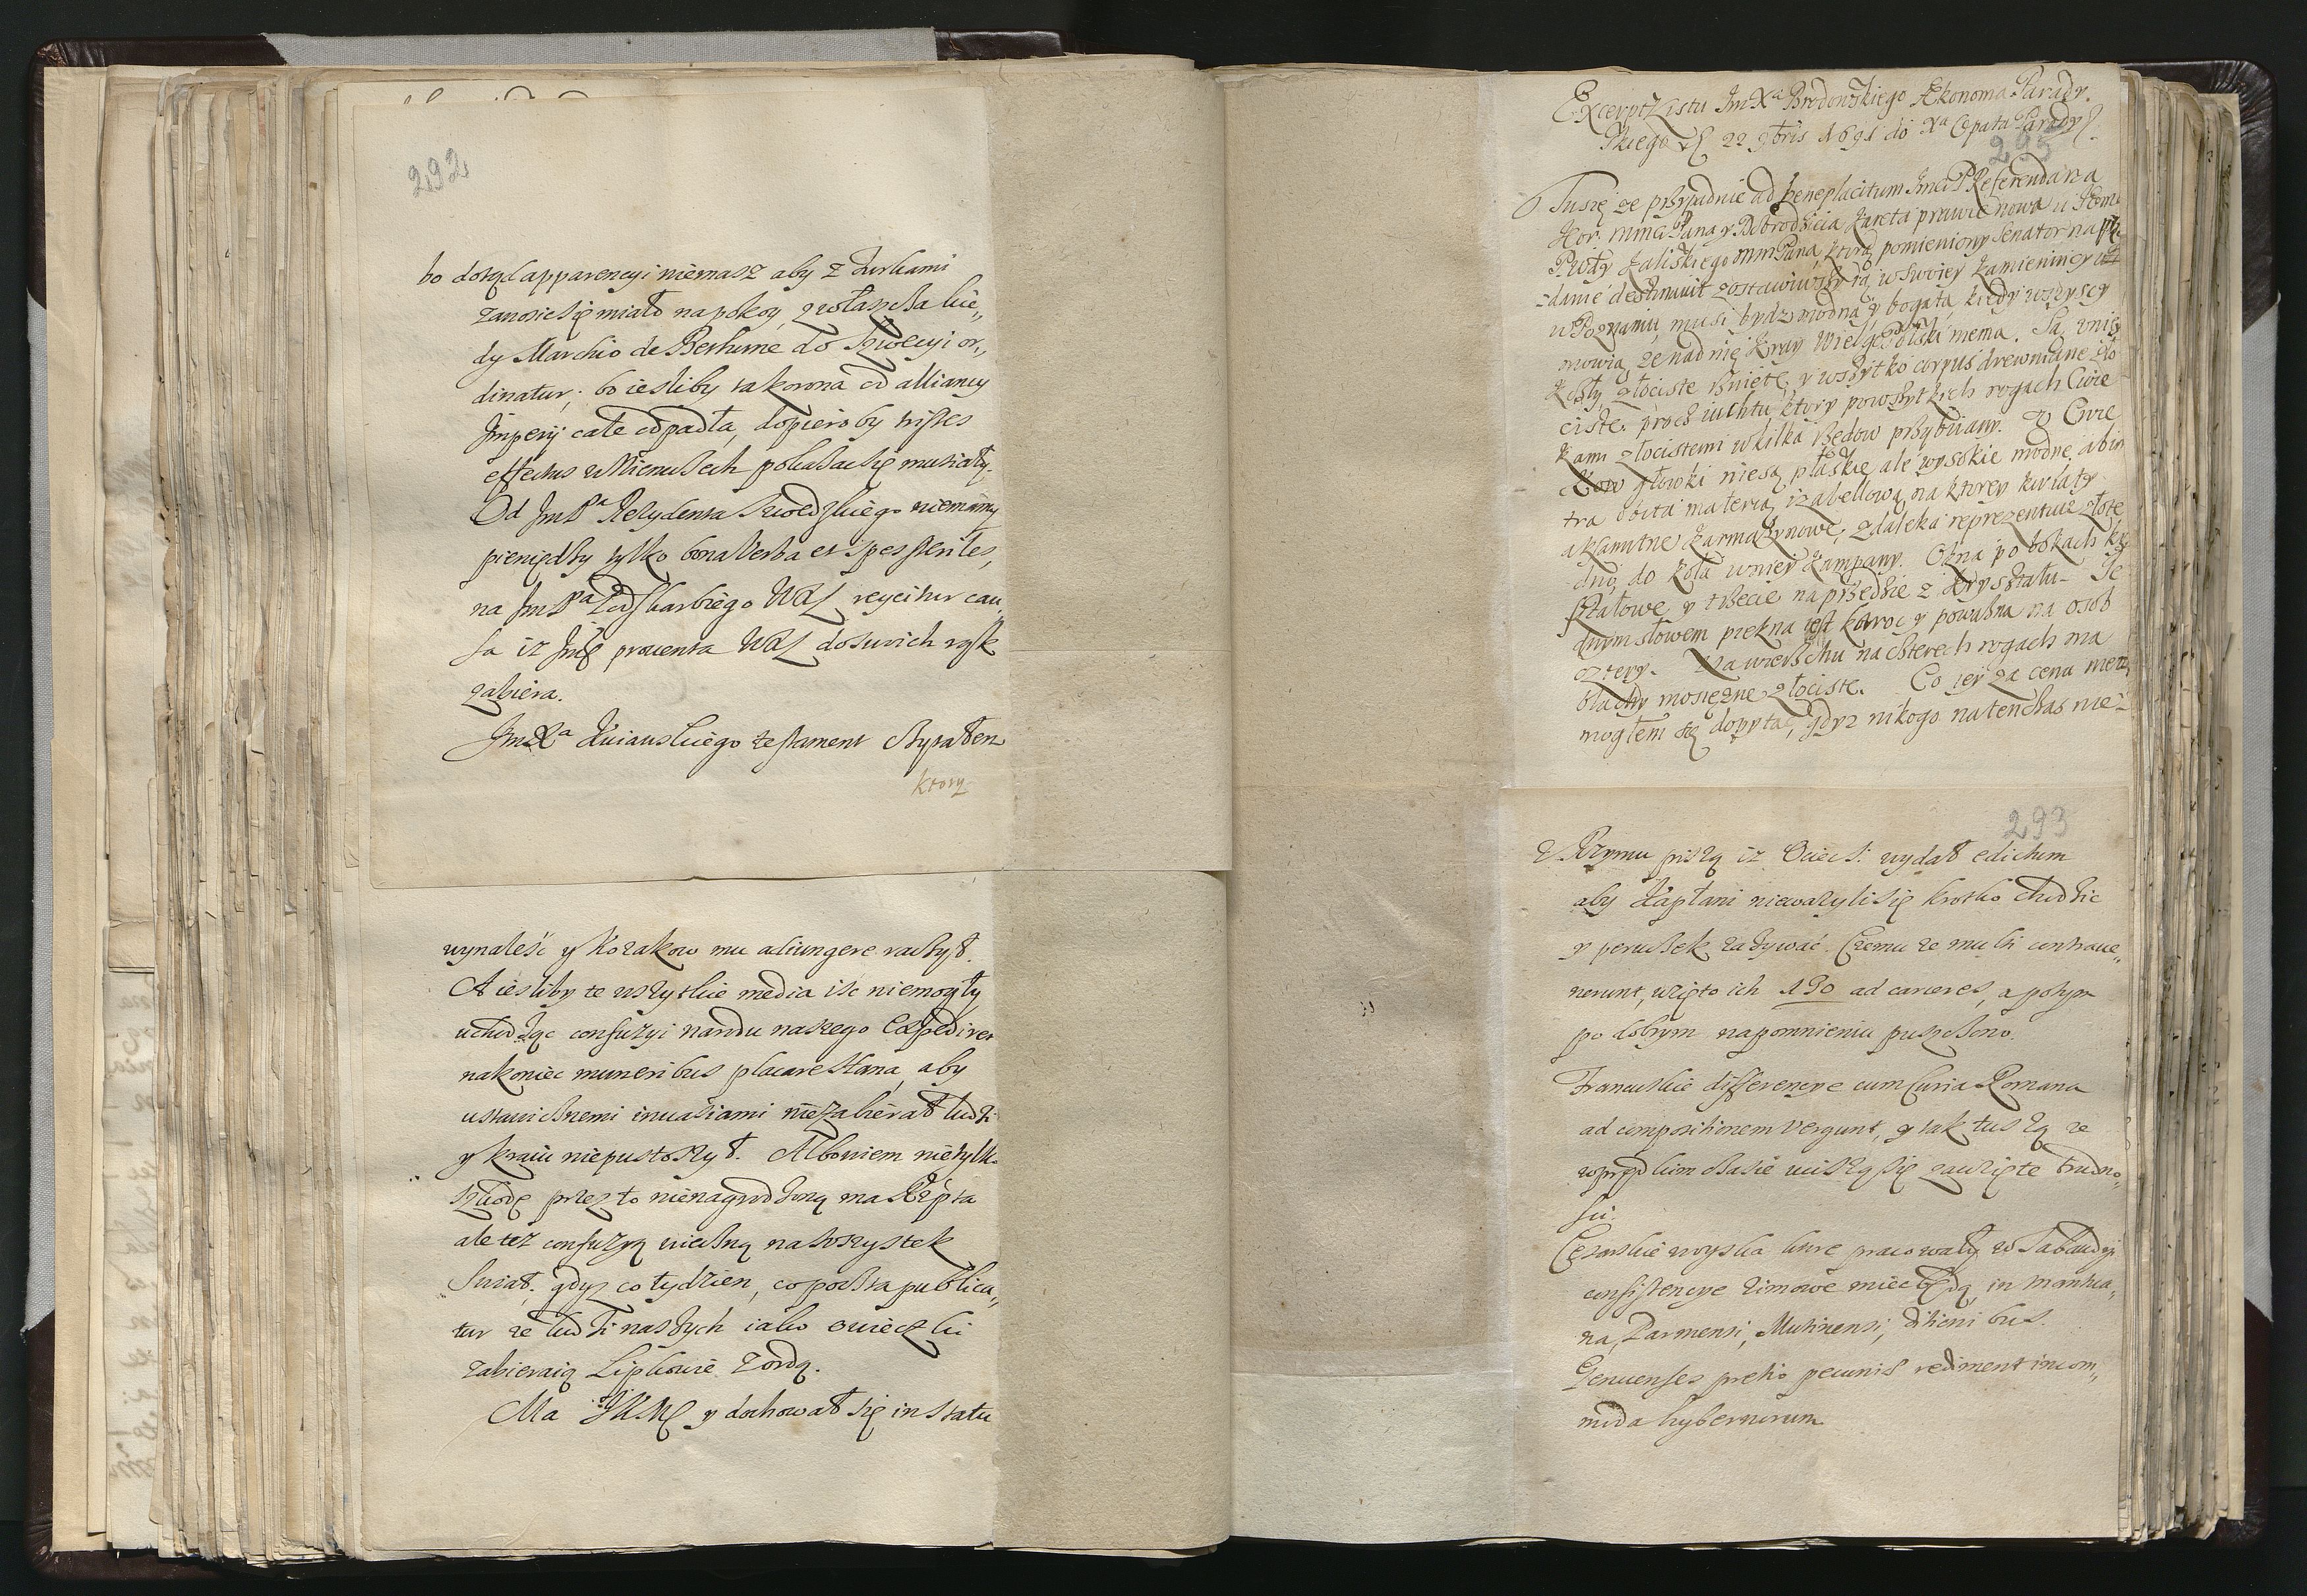 292
bo dotąd apparencyi niemasz aby z Turkami
zanosic się miało na pokoy, zwłaszcza kie„
dy Marchio de Bethune do Szwecyi or„
dinatur; bo iesliby takowa od alliancy
Imperij cale odpadła, dopieroby tristes
effectus w Niemczech pokazac się musiały.
Od JmPa Rezydenta Szwedzkiego niemamy
pieniędzy tylko bona verba et spes
na JmPa Podskarbiego WXL reycitur cau„
sa iz Jmć prouenta WXL do swoich rąk
zabiera.
JmXa Kuiawskiego testament czytałem
ktory
wynaleśc y Kozakow mu adiungere raczył.
A iesliby te wszytkie media isc niemogły
uchodząc confuzyi narodu naszego
nakoniec muneribus placare Hana, aby
ustawicznemi inuasiami niezabierał ludzi
y kraiu niepustoszył. Albowiem nietylko
szkodę przez to nienagrodzoną ma Rzpta
ale tez confuzyą wieczną na wszystek
Swiat, gdyz co tydzien, co poczta publica„
tur ze ludzi naszych iako owieczki
zabieraią Lipkowie z ordą.
Ma JKMć y dochował się in statu
Excerpt z Listu JmXa Brodowskiego Ækonoma Parady„
skiego 22 9bris 1691 do Xa Opata Parady
295
Tuszę ze przypadnie ad beneplacitum Jmci P Referendarza
Kor. mmci Pana y Dobrodzieia kareta prawie nowa u
Pwdy Kaliskiego mm Pana, ktorą pomieniony Senator na
danie destinauit zostawiwszy ią w swoiey kamienicy
w Poznaniu, musi bydz modna y bogata, kiedy wszyscy
mowią, ze nad nię kray Wielge Polski niema. Są u niey
Koły złociste rznięte, y wszytko corpus drewniane zło
ciste, procz iuchtu, ktory powszytkich rogach Cwie
kami złocistemi w kilka rzędow przybiiany. U Cwie
kow głowki niesą płaskie ale wysokie modne, ab in
tra obita materią izabellową na ktorey kwiaty
axamitne karmazynowe, z daleka reprezentuie złote
dno, do koła w niey kampany. Okna po bokach kry
ształowe y trzecie na przedzie z kryształu. Je
dnym słowem piekna iest karoc y powazna na osob
cztery. Na wierzchu na czterech rogach ma
blachy mosięzne złociste. Co iey za cena nie
mogłem się dopytac, gdyz nikogo natenczas nie
293
Z Rzymu piszą iz Ociec S. wydał edictum
aby Kapłani niewazyli się krotko chodzic
y peruczek zazywać. Czemu ze multi contraue„
nerunt, wzięto ich 190 ad carceres, a potym
po dobrym napomnieniu puszczono.
Francuskie differencye cum Curia Romana
ad compositionem vergunt, y tak tuszą ze
w prędkim czasie uciszą się zawzięte trudno„
sci.
Cesarskie woyska ktore pracowały w Sabaudyi
consistencye zimowe miec będą in Mantua„
na, Parmensi, Mutinensi, ditionibus.
Genuenses pretio pecuniae rediment incom„
moda hybernorum